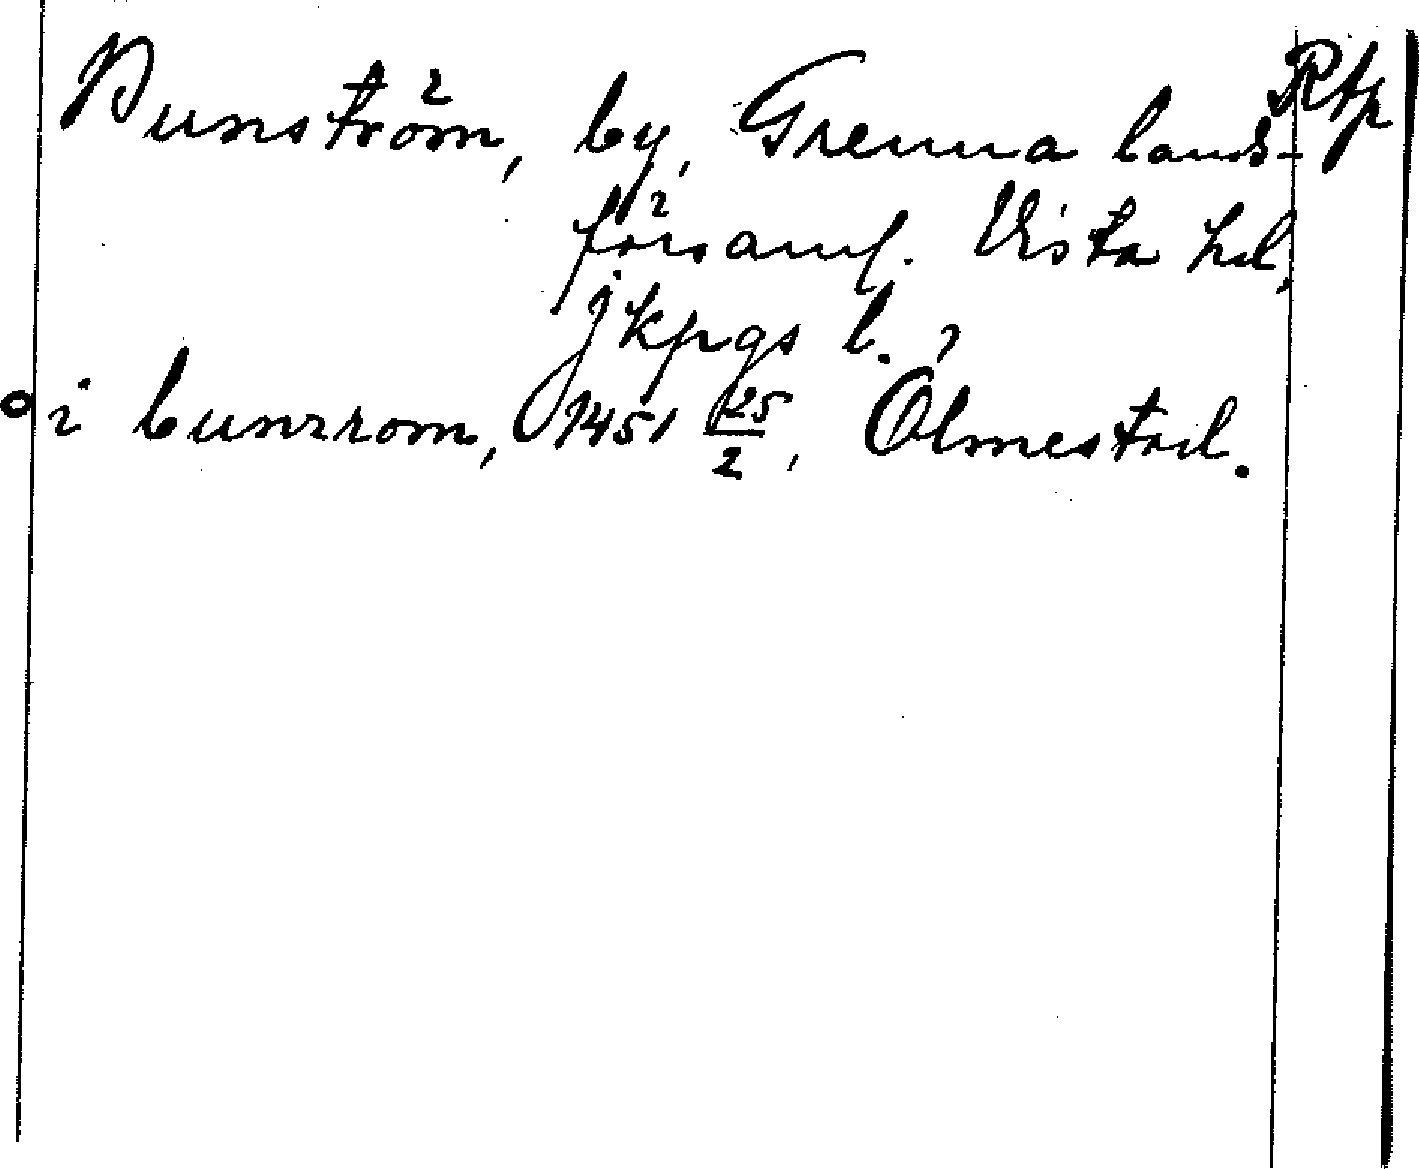 Bunström, by, Grenna lands- Rfp
församl. Vista hd,
Jkpgs l.
i bunzrom, 1451 25/2, Ölmestad.